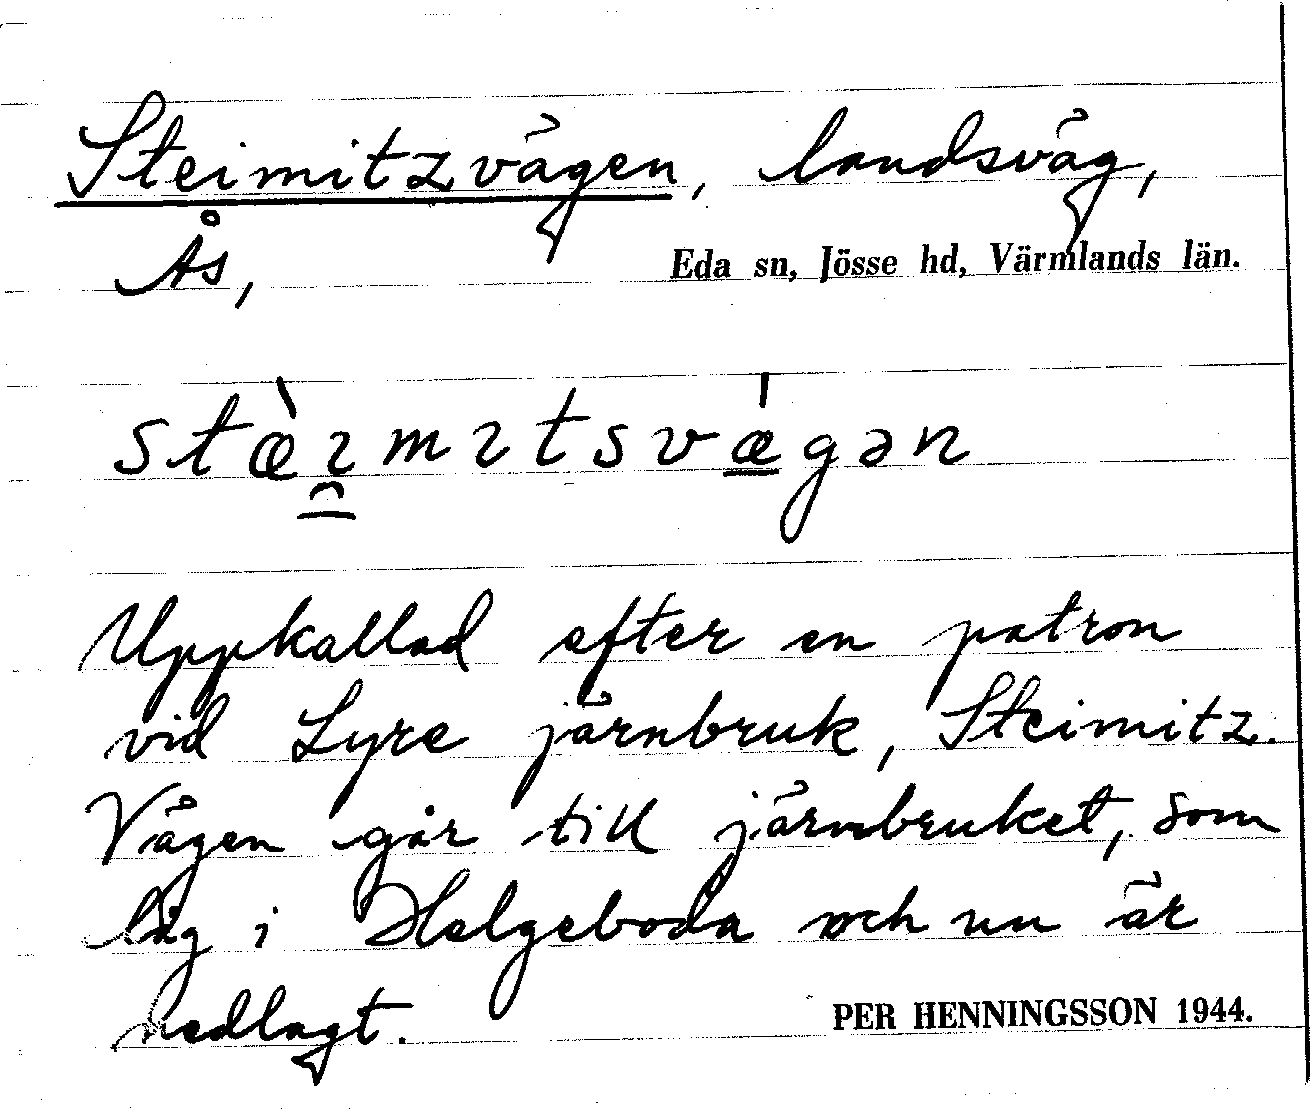 Steimitzvägen, landsväg,
Ås,
Eda sn, Jösse hd, Värmlands län.
stæ̀ɪ̯mɪtsvǽgən
Uppkallad efter en patron
vid Lyre järnbruk, Steimitz.
Vägen går till järnbruket, som
låg i Helgeboda och nu är
nedlagt.
PER HENNINGSSON 1944.